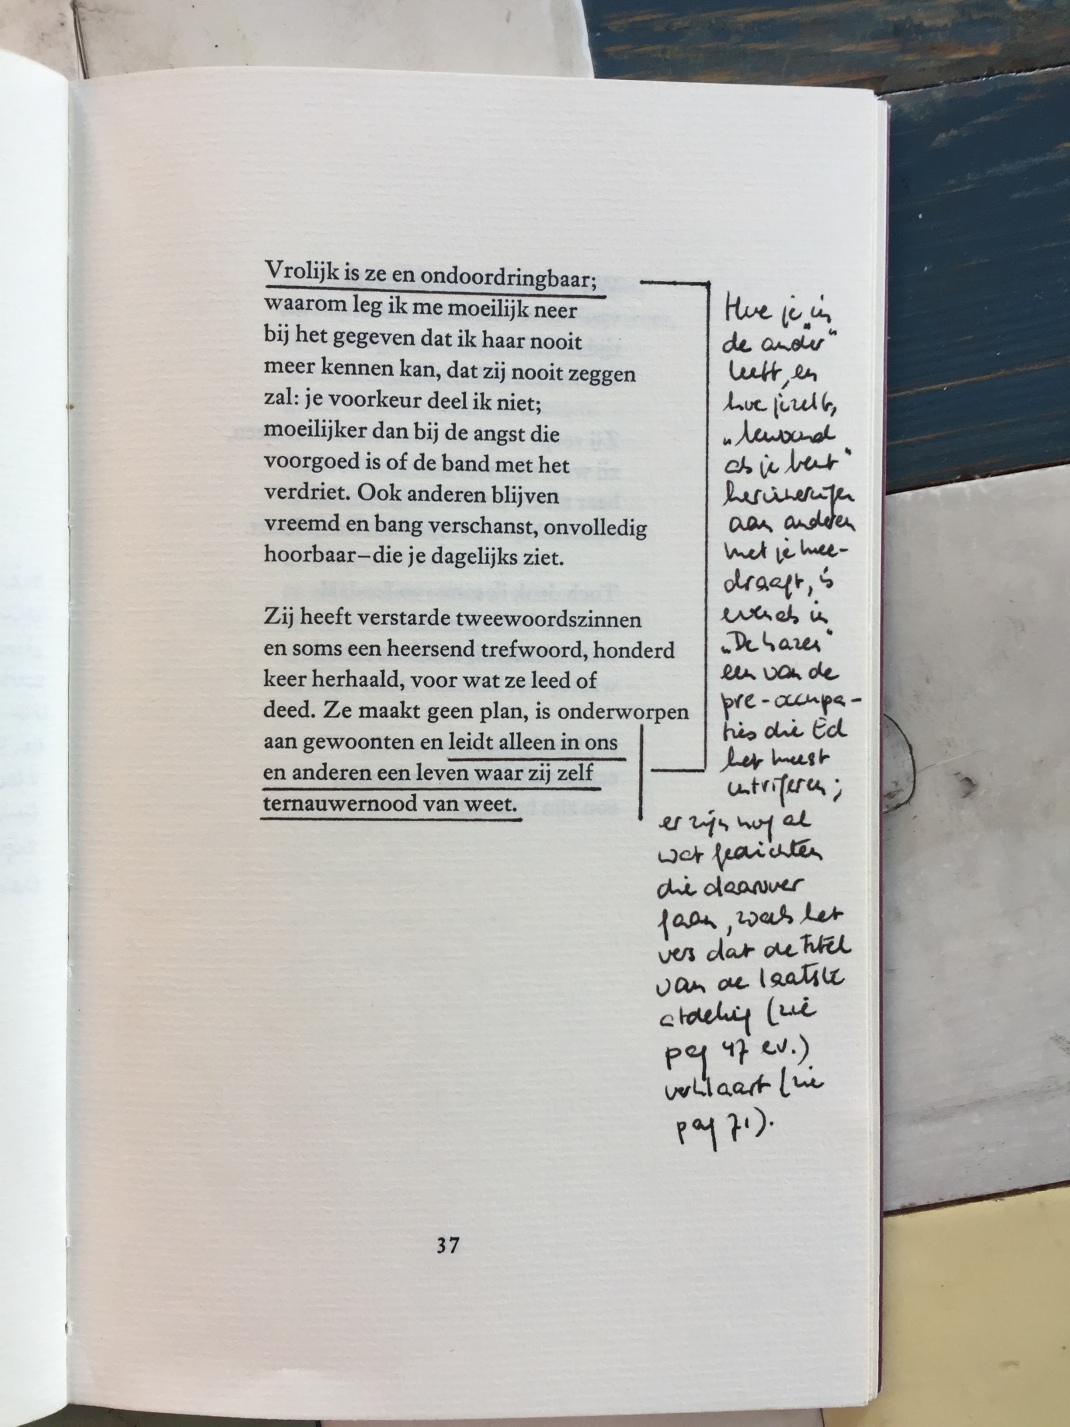 Vrolijk is ze en ondoordringbaar;
waarom leg ik me moeilijk neer
bij het gegeven dat ik haar nooit
meer kennen kan, dat zij nooit zeggen
zal: je voorkeur deel ik niet;
moeilijker dan bij de angst die
voorgoed is of de band met het
verdriet. Ook anderen blijven
vreemd en bang verschanst, onvolledig
hoorbaar–die je dagelijks ziet.
Zij heeft verstarde tweewoordszinnen
en soms een heersend trefwoord, honderd
keer herhaald, voor wat ze leed of
deed. Ze maakt geen plan, is onderworpen
aan gewoonten en leidt alleen in ons
en anderen een leven waar zij zelf
ternauwernood van weet.
Hoe je in
de ander"
leeft, en
hoe jezelf,
„bewoond
als je bent"
herinneringen
aan anderen
met je mee-
draagt, is
evenals in
„De hazen"
een van de
pre-occupa-
ties die Ed
het meest
intrigeren;
er zijn nog al
wat gedichten
die daarover
gaan, zoals het
vers dat de titel
van de laatste
afdeling (zie
pag 47 e.v.)
verklaart (zie
pag 71).
37